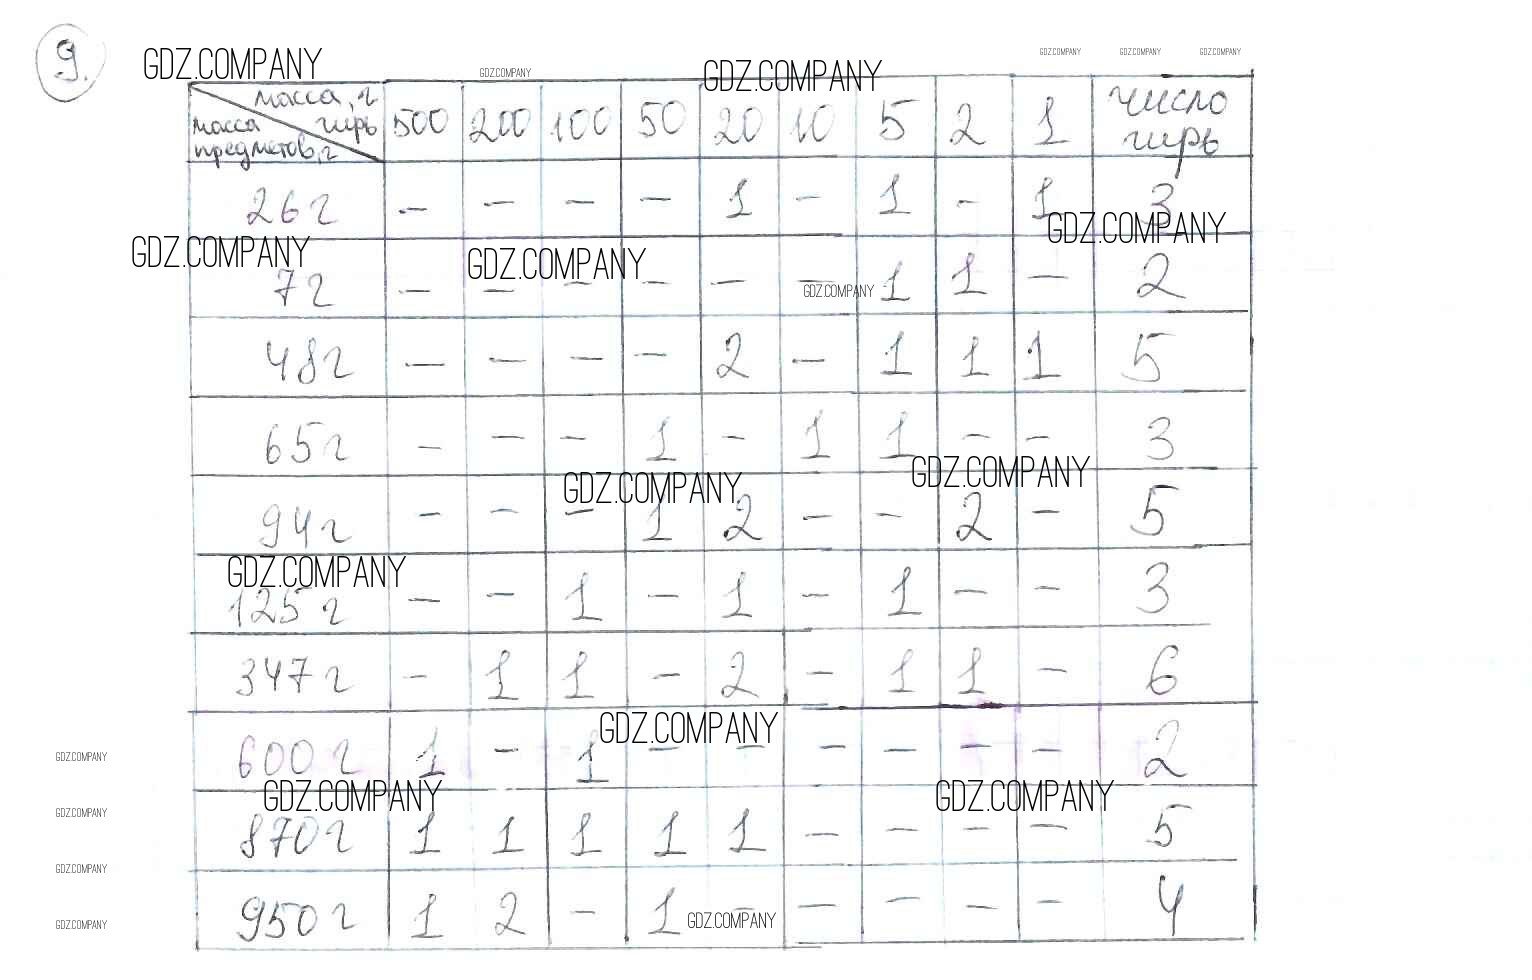 9.
GDZ.COMPANY GDZ.COMPANY GDZ.COMPANY GDZ.COMPANY GDZ.COMPANY GDZ.COMPANY
масса, г гирь масса предметов, г 500 200 100 50 20 10 5 2 1 число гирь
26 г – – – – 1 – 1 – 1 3
GDZ.COMPANY GDZ.COMPANY GDZ.COMPANY
7 г – – – – – – 1 1 – 2
GDZ.COMPANY
48 г – – – – 2 – 1 1 1 5
65 г – – – 1 – 1 1 – – 3
GDZ.COMPANY GDZ.COMPANY
94 г – – – 1 2 – – 2 – 5
GDZ.COMPANY
125 г – – 1 – 1 – 1 – – 3
347 г – 1 1 – 2 – 1 1 – 6
GDZ.COMPANY
600 г 1 – 1 – – – – – – 2
GDZ.COMPANY
GDZ.COMPANY GDZ.COMPANY
870 г 1 1 1 1 1 – – – – 5
GDZ.COMPANY
GDZ.COMPANY
950 г 1 2 – 1 – – – – – 4
GDZ.COMPANY GDZ.COMPANY